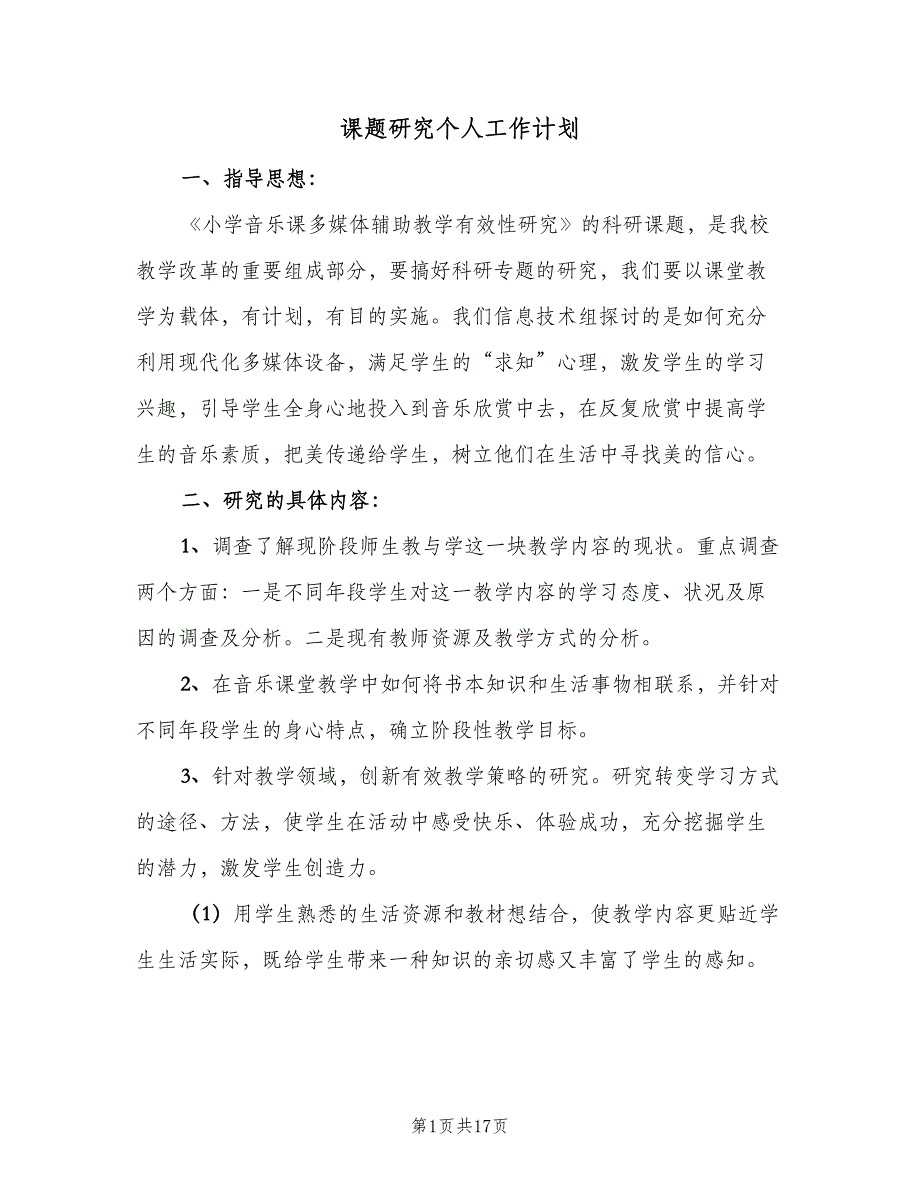 课题研究个人工作计划
一、指导思想：
《小学音乐课多媒体辅助教学有效性研究》的科研课题，是我校
教学改革的重要组成部分，要搞好科研专题的研究，我们要以课堂教
学为载体，有计划，有目的实施。我们信息技术组探讨的是如何充分
利用现代化多媒体设备，满足学生的“求知”心理，激发学生的学习
兴趣，引导学生全身心地投入到音乐欣赏中去，在反复欣赏中提高学
生的音乐素质，把美传递给学生，树立他们在生活中寻找美的信心。
二、研究的具体内容：
1、调查了解现阶段师生教与学这一块教学内容的现状。重点调查
两个方面：一是不同年段学生对这一教学内容的学习态度、状况及原
因的调查及分析。二是现有教师资源及教学方式的分析。
2、在音乐课堂教学中如何将书本知识和生活事物相联系，并针对
不同年段学生的身心特点，确立阶段性教学目标。
3、针对教学领域，创新有效教学策略的研究。研究转变学习方式
的途径、方法，使学生在活动中感受快乐、体验成功，充分挖掘学生
的潜力，激发学生创造力。
（1）用学生熟悉的生活资源和教材想结合，使教学内容更贴近学
生生活实际，既给学生带来一种知识的亲切感又丰富了学生的感知。
第1页共17页